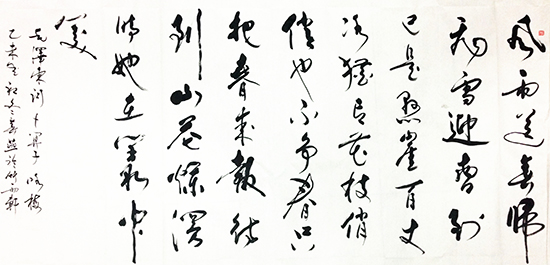 风雨送春归
飞雪迎春到
已是悬崖百丈
冰犹有花枝俏
俏也不争春只
把春来報待
到山花烂漫
时她在丛中
笑
毛泽东词卜算子咏梅
乙未年初冬